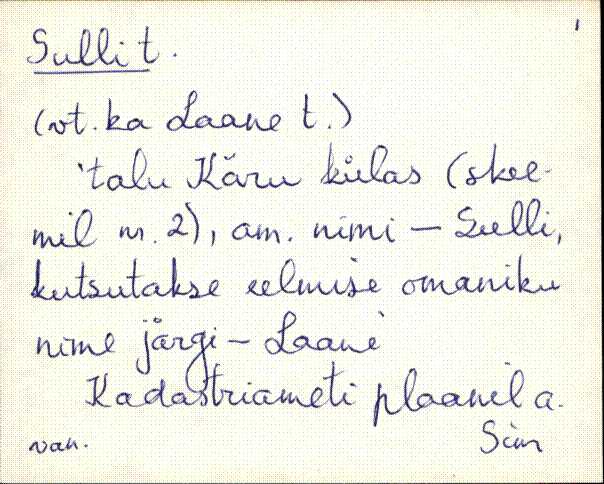 Sulli t.
(vt. ka Laane t.)
'talu Käru külas (skee-
mil nr. 2), am. nimi – Sulli,
kutsutakse eelmise omaniku
nime järgi – Laane'
Kadastriameti plaanil a.
van.
Sim